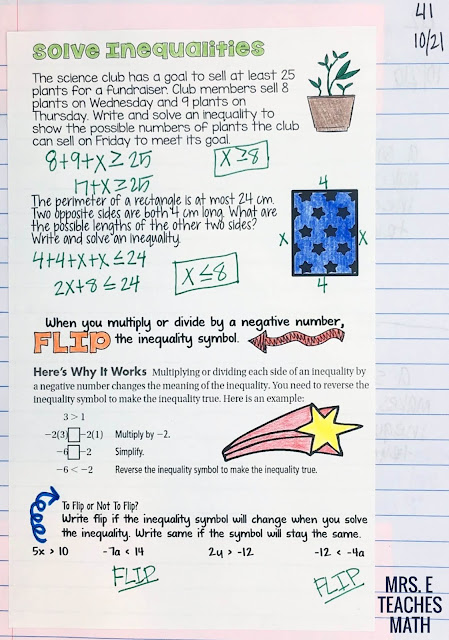 41
10/21
Solve Inequalities
The science club has a goal to sell at least 25
plants for a fundraiser. Club members sell 8
plants on Wednesday and 9 plants on
Thursday. Write and solve an inequality to
show the possible numbers of plants the club
can sell on Friday to meet its goal.
8+9+x≥25
x≥8
17+x≥25
The perimeter of a rectangle is at most 24 cm.
Two opposite sides are both 4 cm long. What are
the possible lengths of the other two sides?
Write and solve an inequality.
4
x x
4
4+4+x+x≤24
2x+8≤24
x≤8
When you multiply or divide by a negative number,
FLIP the inequality symbol.
Here's Why It Works Multiplying or dividing each side of an inequality by
a negative number changes the meaning of the inequality. You need to reverse the
inequality symbol to make the inequality true. Here is an example:
3 > 1
−2(3) −2(1) Multiply by −2.
−6 −2 Simplify.
−6 < −2 Reverse the inequality symbol to make the inequality true.
To Flip or Not To Flip?
Write flip if the inequality symbol will change when you solve
the inequality. Write same if the symbol will stay the same.
5x > 10 -7a < 14 2y > -12 -12 < -4a
FLIP FLIP
MRS. E
TEACHES
MATH